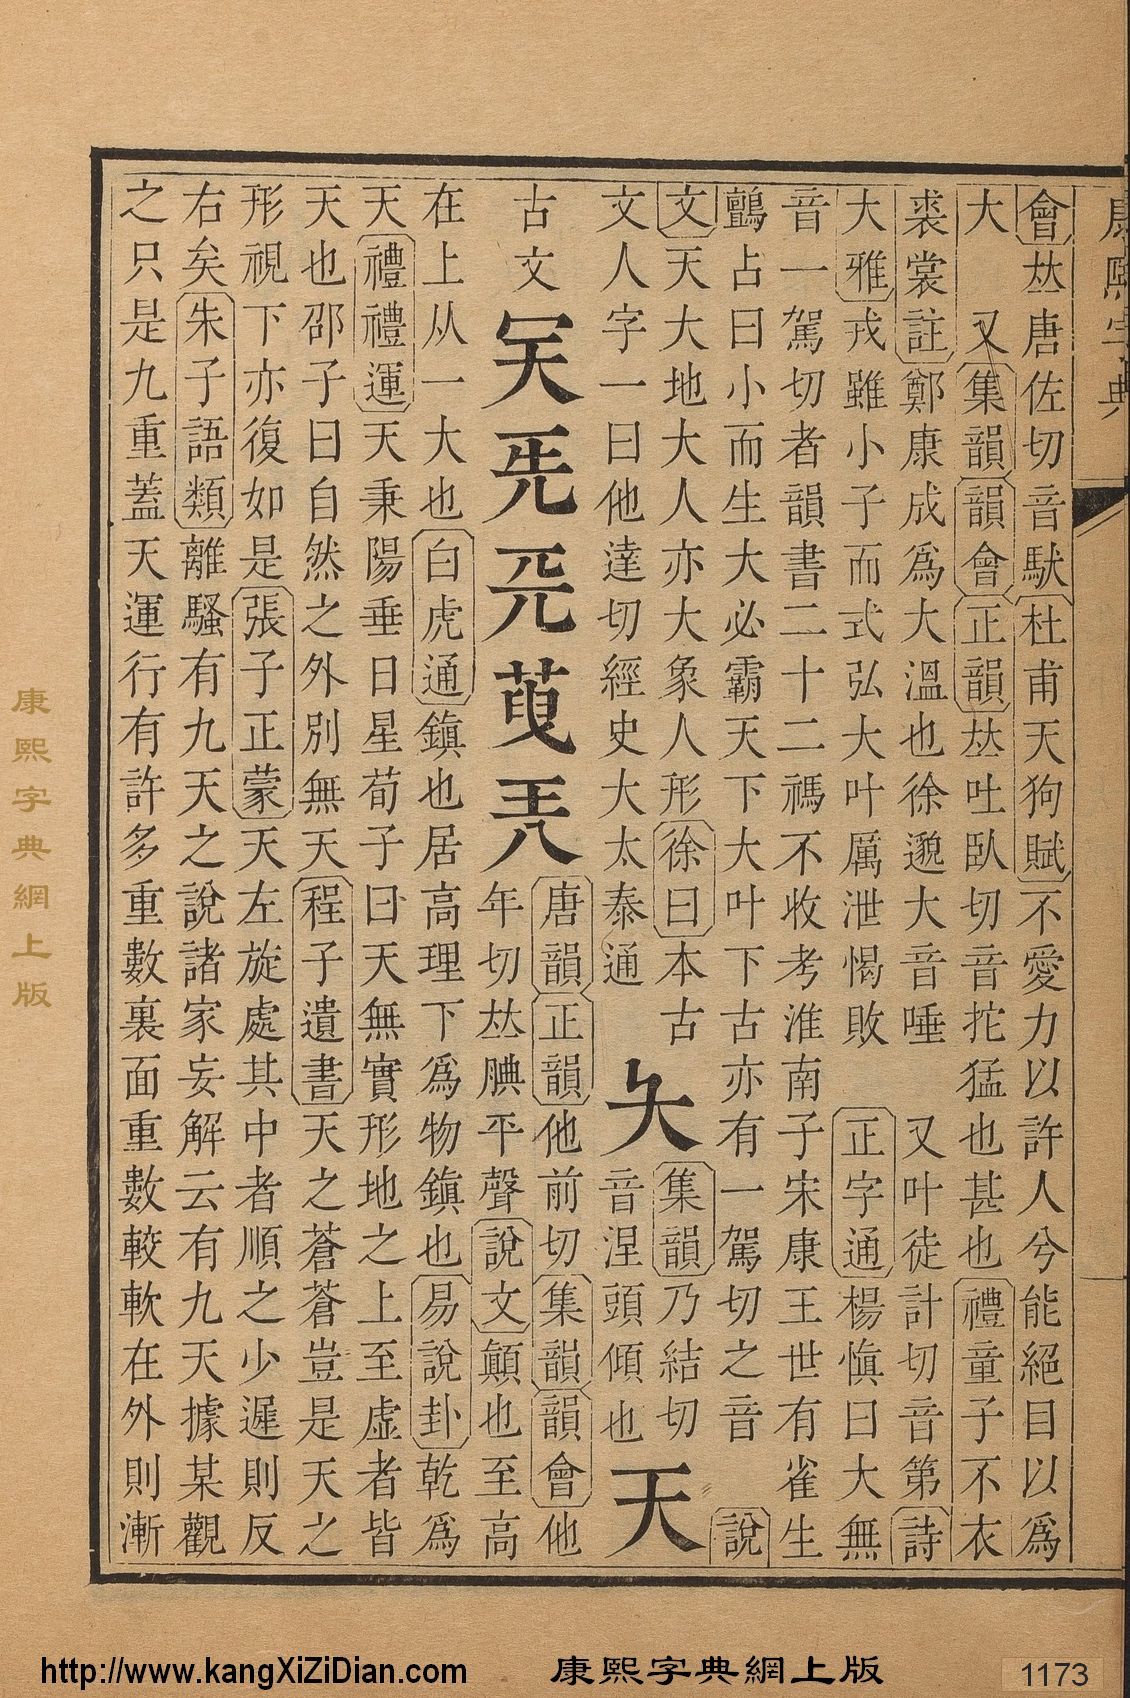 康熙字典
會𠀤唐佐切音馱杜甫天狗賦不愛力以許人兮能絕目以爲
大 又集韻韻會正韻𠀤吐臥切音拕猛也甚也禮童子不衣
裘裳註鄭康成爲大溫也徐邈大音唾 又叶徒計切音第詩
大雅戎雖小子而式弘大叶厲泄愒敗 正字通楊愼曰大無
音一駕切者韻書二十二禡不收考淮南子宋康王世有雀生
鸇占曰小而生大必霸天下大叶下古亦有一駕切之音 說
文天大地大人亦大象人形徐曰本古
文人字一曰他達切經史大太泰通
集韻乃結切
音涅頭傾也
天
古文
唐韻正韻他前切集韻韻會他
年切𠀤腆平聲說文顚也至高
在上从一大也白虎通鎭也居高理下爲物鎭也易說卦乾爲
天禮禮運天秉陽垂日星荀子曰天無實形地之上至虛者皆
天也邵子曰自然之外別無天程子遺書天之蒼蒼豈是天之
形視下亦復如是張子正蒙天左旋處其中者順之少遲則反
右矣朱子語類離騷有九天之說諸家妄解云有九天據某觀
之只是九重蓋天運行有許多重數裏面重數較軟在外則漸
康熙字典網上版
http://www.kangXiZiDian.com 康熙字典網上版 1173